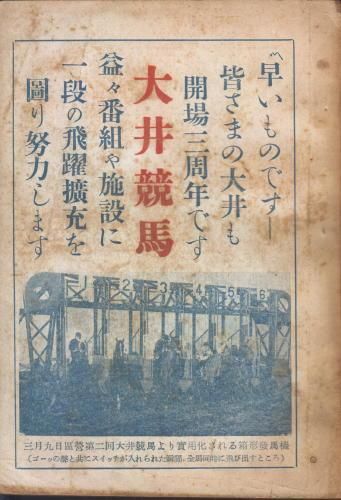 〝早いものです―
皆さまの大井も
開場三周年です
大井競馬
益々番組や施設に
一段の飛躍擴充を
圖り努力します
1 2 3 4 5 6
三月九日區營第二回大井競馬より實用化される箱形發馬機
(ゴーッの聲と共にスイッチが入れられた瞬間、全馬同時に飛び出すところ)